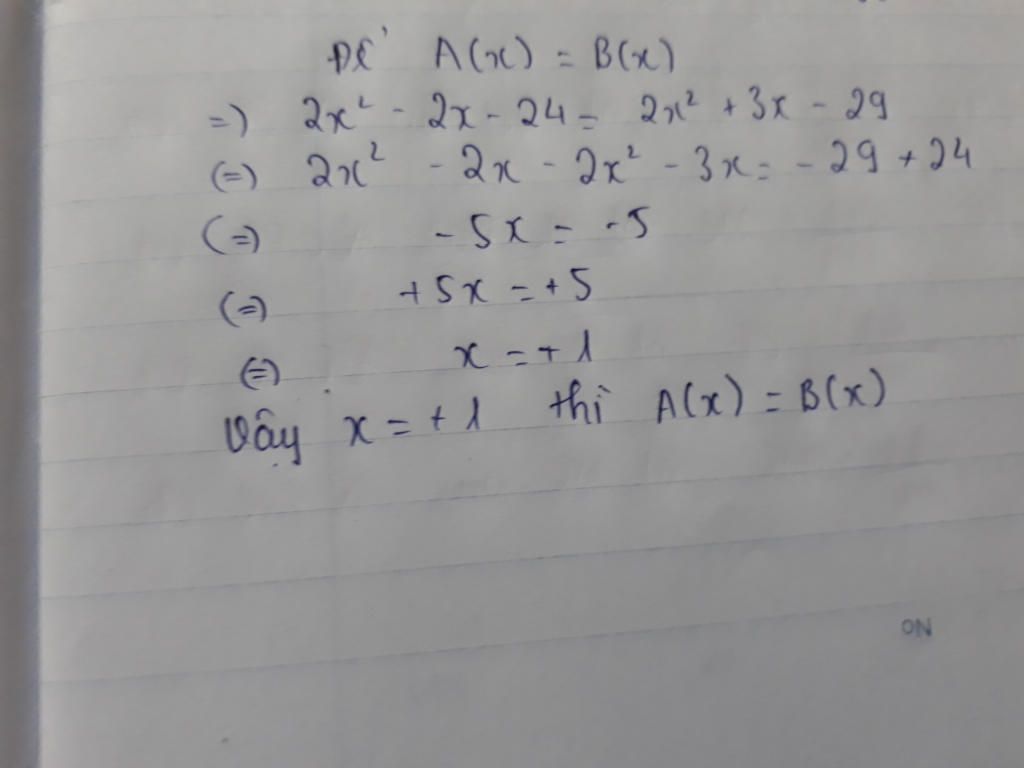 Để A(x) = B(x)
=) 2x² - 2x - 24 = 2x² + 3x - 29
(=) 2x² - 2x - 2x² - 3x = - 29 + 24
(=) - 5x = - 5
(=) + 5x = + 5
(=) x = + 1
Vậy x = + 1 thì A(x) = B(x)
NO